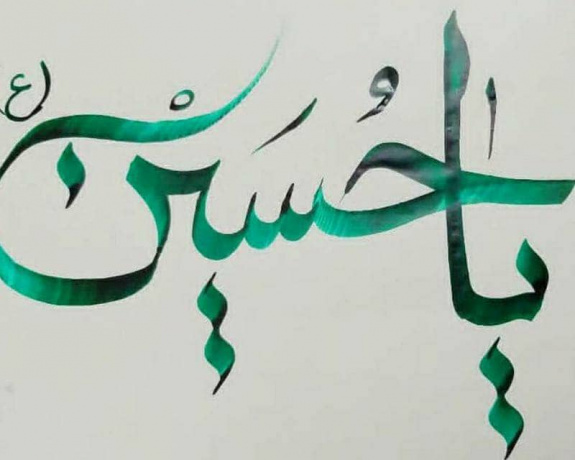 یا حُسَیْن ع